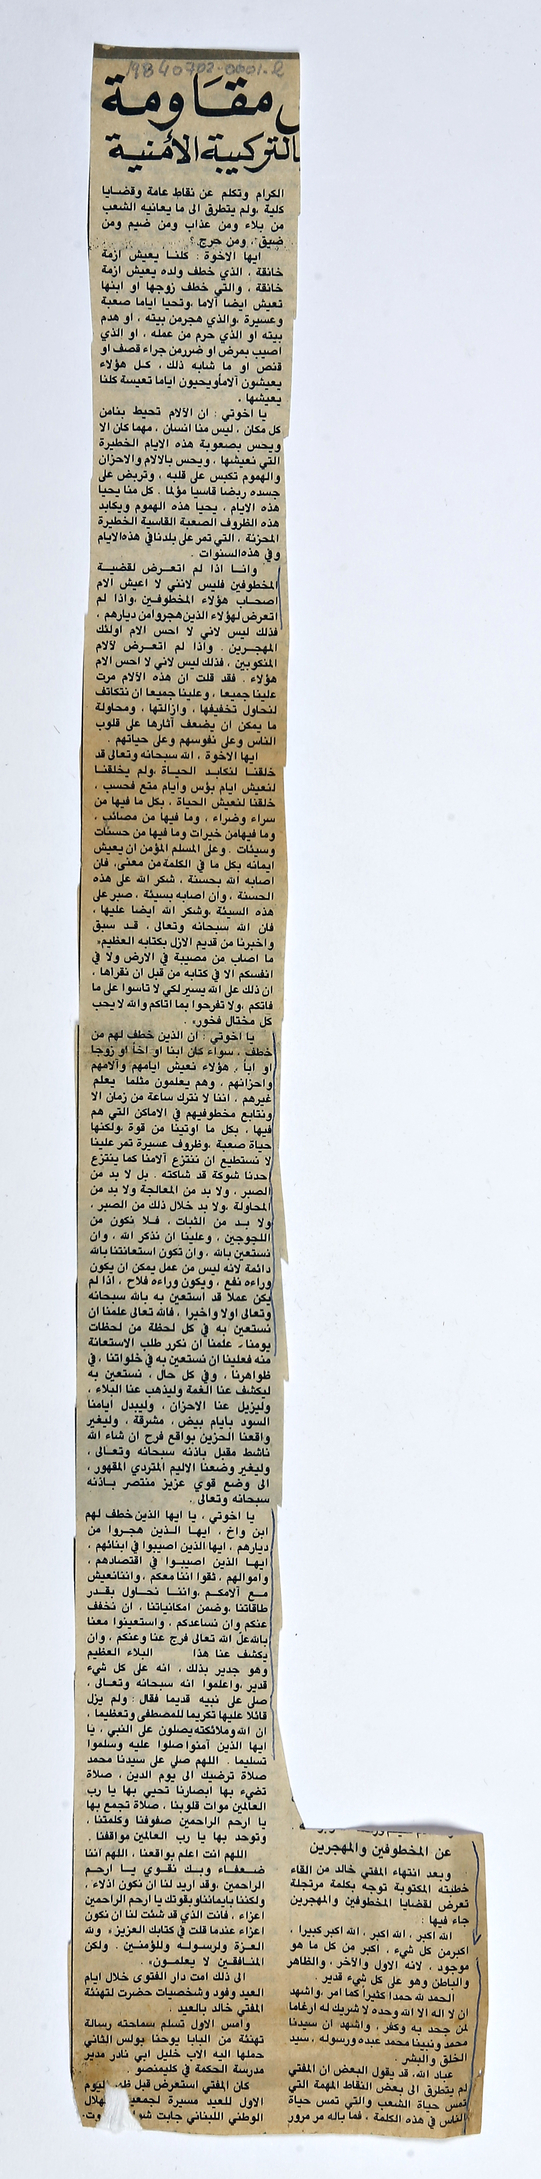 19840702-0001.2
مقاومة
بالتركيبة الأمنية
عن المخطوفين والمهجرين
وبعد انتهاء المفتي خالد من القاء
خطبته المكتوبة توجه بكلمة مرتجلة
تعرض لقضايا المخطوفين والمهجرين
جاء فيها :
الله اكبر ، الله اكبر ، الله اكبر كبيرا ،
اكبر من كل شيء ، اكبر من كل ما هو
موجود ، لانه الاول والآخر ، والظاهر
والباطن وهو على كل شيء قدير .
الحمد لله حمدا كثيرا كما امر ، واشهد
ان لا اله الا الله وحده لا شريك له ارغاما
لمن جحد به وكفر ، واشهد ان سيدنا
محمد ونبينا محمد عبده ورسوله ، سيد
الخلق والبشر .
عباد الله، قد يقول البعض ان المفتي
لم يتطرق الى بعض النقاط المهمة التي
تمس حياة الشعب والتي تمس حياة
الناس في هذه الكلمة ، فما باله مر مرور
الكرام وتكلم عن نقاط عامة وقضايا
كلية ،ولم يتطرق الى ما يعانيه الشعب
من بلاء ومن عذاب ومن ضيم ومن
ضيق ، ومن حرج ؟
ايها الاخوة : كلنا يعيش ازمة
خانقة ، الذي خطف ولده يعيش ازمة
خانقة ، والتي خطف زوجها او ابنها
تعيش ايضا آلاما ،وتحيا اياما صعبة
وعسيرة ،والذي هجر من بيته ، او هدم
بيته او الذي حرم من عمله ، او الذي
اصيب بمرض او ضرر من جراء قصف او
قنص او ما شابه ذلك ، كل هؤلاء
يعيشون آلاما ويحيون اياما تعيسة كلنا
يعيشها .
يا اخوتي : ان الآلام تحيط بنا من
كل مكان ، ليس منا انسان ، مهما كان الا
ويحس بصعوبة هذه الايام الخطيرة
التي نعيشها ، ويحس بالآلام والاحزان
والهموم تكبس على قلبه ، وتربض على
جسده ربضا قاسيا مؤلما . كل منا يحيا
هذه الايام ، يحيا هذه الهموم ويكابد
هذه الظروف الصعبة القاسية الخطيرة
المحزنة ، التي تمر على بلدنا في هذه الايام
وفي هذه السنوات .
وانا اذا لم اتعرض لقضية
المخطوفين فليس لانني لا اعيش آلام
اصحاب هؤلاء المخطوفين ،واذا لم
اتعرض لهؤلاء الذين هجروا من ديارهم ،
فذلك ليس لاني لا احس آلام اولئك
المهجرين . واذا لم اتعرض لآلام
المنكوبين ، فذلك ليس لاني لا احس آلام
هؤلاء . فقد قلت ان هذه الآلام مرت
علينا جميعا ، وعلينا جميعا ان نتكاتف
لنحاول تخفيفها ، وازالتها ، ومحاولة
ما يمكن ان يضعف آثارها على قلوب
الناس وعلى نفوسهم وعلى حياتهم .
ايها الاخوة ، الله سبحانه وتعالى قد
خلقنا لنكابد الحياة ،ولم يخلقنا
لنعيش ايام بؤس وايام متع فحسب .
خلقنا لنعيش الحياة ، بكل ما فيها من
سراء وضراء ، وما فيها من مصائب ،
وما فيها من خيرات وما فيها من حسنات
وسيئات . وعلى المسلم المؤمن ان يعيش
ايمانه بكل ما في الكلمة من معنى، فان
اصابه الله بحسنة ، شكر الله على هذه
الحسنة ، وان اصابه بسيئة ، صبر على
هذه السيئة ،وشكر الله ايضا عليها ،
فان الله سبحانه وتعالى ، قد سبق
واخبرنا من قديم الازل بكتابه العظيم«
ما اصاب من مصيبة في الارض ولا في
انفسكم الا في كتابه من قبل ان نقراها ،
ان ذلك على الله يسير لكي لا تاسوا على ما
فاتكم ،ولا تفرحوا بما اتاكم والله لا يحب
كل مختال فخور» .
يا اخوتي : ان الذين خطف لهم من
خطف ، سواء كان ابنا او اخا او زوجا
او ابا ، هؤلاء نعيش ايامهم وآلامهم
واحزانهم ، وهم يعلمون مثلما يعلم
غيرهم ، اننا لا نترك ساعة من زمان الا
ونتابع مخطوفيهم في الاماكن التي هم
فيها ، بكل ما اوتينا من قوة ،ولكنها
حياة صعبة ،وظروف عسيرة تمر علينا
لا نستطيع ان ننتزع آلامنا كما ينتزع
احدنا شوكة قد شاكته . بل لا بد من
الصبر ، ولا بد من المعالجة ولا بد من
المحاولة ،ولا بد خلال ذلك من الصبر ،
ولا بد من الثبات ، فلا نكون من
اللجوجين ، وعلينا ان نذكر الله ، وان
نستعين بالله ، وان تكون استعانتنا بالله
دائمة لانه ليس من عمل يمكن ان يكون
وراءه نفع ، ويكون وراءه فلاح ، اذا لم
يكن عملا قد استعين به بالله سبحانه
وتعالى اولا واخيرا ، فالله تعالى علمنا ان
نستعين به في كل لحظة من لحظات
يومنا، علمنا ان نكرر طلب الاستعانة
منه فعلينا ان نستعين به في خلواتنا ، في
ظواهرنا ، وفي كل حال ، نستعين به
ليكشف عنا الغمة وليذهب عنا البلاء ،
وليزيل عنا الاحزان ، وليبدل ايامنا
السود بايام بيض ، مشرقة ، وليغير
واقعنا الحزين بواقع فرح ان شاء الله
ناشط مقبل باذنه سبحانه وتعالى ،
وليغير وضعنا الاليم المتردي المقهور ،
الى وضع قوي عزيز منتصر باذنه
سبحانه وتعالى .
يا اخوتي ، يا ايها الذين خطف لهم
ابن واخ ، ايها الذين هجروا من
ديارهم ، ايها الذين اصيبوا في ابنائهم ،
ايها الذين اصيبوا في اقتصادهم ،
واموالهم ، ثقوا اننا معكم ، واننا نعيش
مع آلامكم ،واننا نحاول بقدر
طاقاتنا ،وضمن امكانياتنا ، ان نخفف
عنكم وان نساعدكم ، واستعينوا معنا
بالله عل الله تعالى فرج عنا وعنكم ، وان
يكشف عنا هذا البلاء العظيم
وهو جدير بذلك ، انه على كل شيء
قدير ،واعلموا انه سبحانه وتعالى ،
صلى على نبيه قديما فقال : ولم يزل
قائلا عليها تكريما للمصطفى وتعظيما ،
ان الله وملائكته يصلون على النبي ، يا
ايها الذين آمنوا صلوا عليه وسلموا
تسليما . اللهم صلي على سيدنا محمد
صلاة ترضيك الى يوم الدين ، صلاة
تضيء بها ابصارنا تحيي بها يا رب
العالمين موات قلوبنا ، صلاة تجمع بها
يا ارحم الراحمين صفوفنا وكلمتنا ،
وتوحد بها يا رب العالمين مواقفنا .
اللهم انت اعلم بواقعنا ، اللهم اننا
ضعفاء وبك نقوي يا ارحم
الراحمين ،وقد اريد لنا ان نكون اذلاء ،
ولكننا بايماننا وبقوتك يا ارحم الراحمين
اعزاء ، فانت الذي قد شئت لنا ان نكون
اعزاء عندما قلت في كتابك العزيز:« ولله
العزة ولرسوله وللؤمنين . ولكن
المنافقين لا يعلمون» .
الى ذلك امت دار الفتوى خلال ايام
العيد وفود وشخصيات حضرت لتهنئة
المفتي خالد بالعيد .
وامس الاول تسلم سماحته رسالة
تهنئة من البابا يوحنا بولس الثاني
حملها اليه الاب خليل ابي نادر مدير
مدرسة الحكمة في كليمنصو .
كان المفتي استعرض قبل ظهر اليوم
الاول للعيد مسيرة لجمعية الهلال
الوطني اللبناني جابت